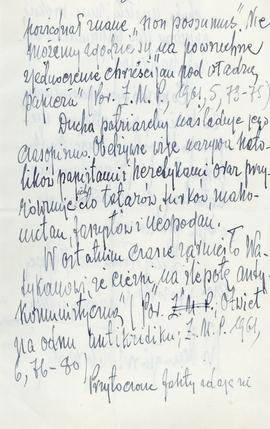 powiedział znane „non possumus". Nie
możemy zgodzić się „na powszechne
zjednoczenie chrześcijan pod władzą
papieża" (Por. Ż.M.P., 1961, 5, 73-75)
Ducha patriarchy naśladuje jego
czasopismo. Obelżywie wręcz nazywa kato-
lików papistami i heretykami oraz przy-
równuje ich do tatarów, turków, maho-
metan,
W ostatnim czasie zarzuciło Wa-
tykanowi, że cierpi „na ślepotę anty-
komunistyczną" (Por. Ż.M.P., Otwiet
na odnu antikritiku; Ż.M.P. 1961,
6, 76-80)
Przytoczone fakty zdają się